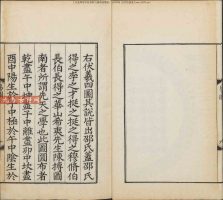 右伏羲四圖其說皆出邵氏蓋邵氏
得之李之才挺之挺之得之穆脩伯
長伯長得之華山希夷先生陳摶圖
南者所謂先天之學也此圖圓布者
乾盡午中坤盡子中離盡卯中坎盡
酉中陽生於子中極於午中陰生於